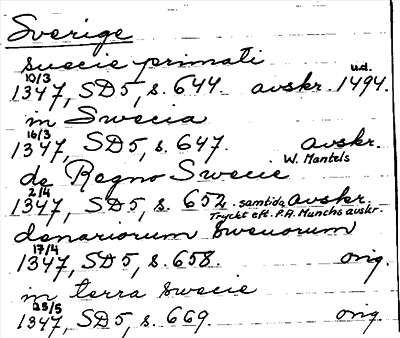 Sverige
suecie primati
10/3 u.d.
1347, SD5, s. 644 avskr. 1494.
in Swecia
16/3
1347, SD5, s. 647. avskr.
W. Mantels
de Regno Swecie
2/4
1347, SD5, s. 652. samtida avskr.
Tryckt eft. P.A. Munchs avskr.
denariorum sweuorum
17/4
1347, SD5, s. 658. orig.
in terra swecie
25/5
1347, SD5, s. 669. orig